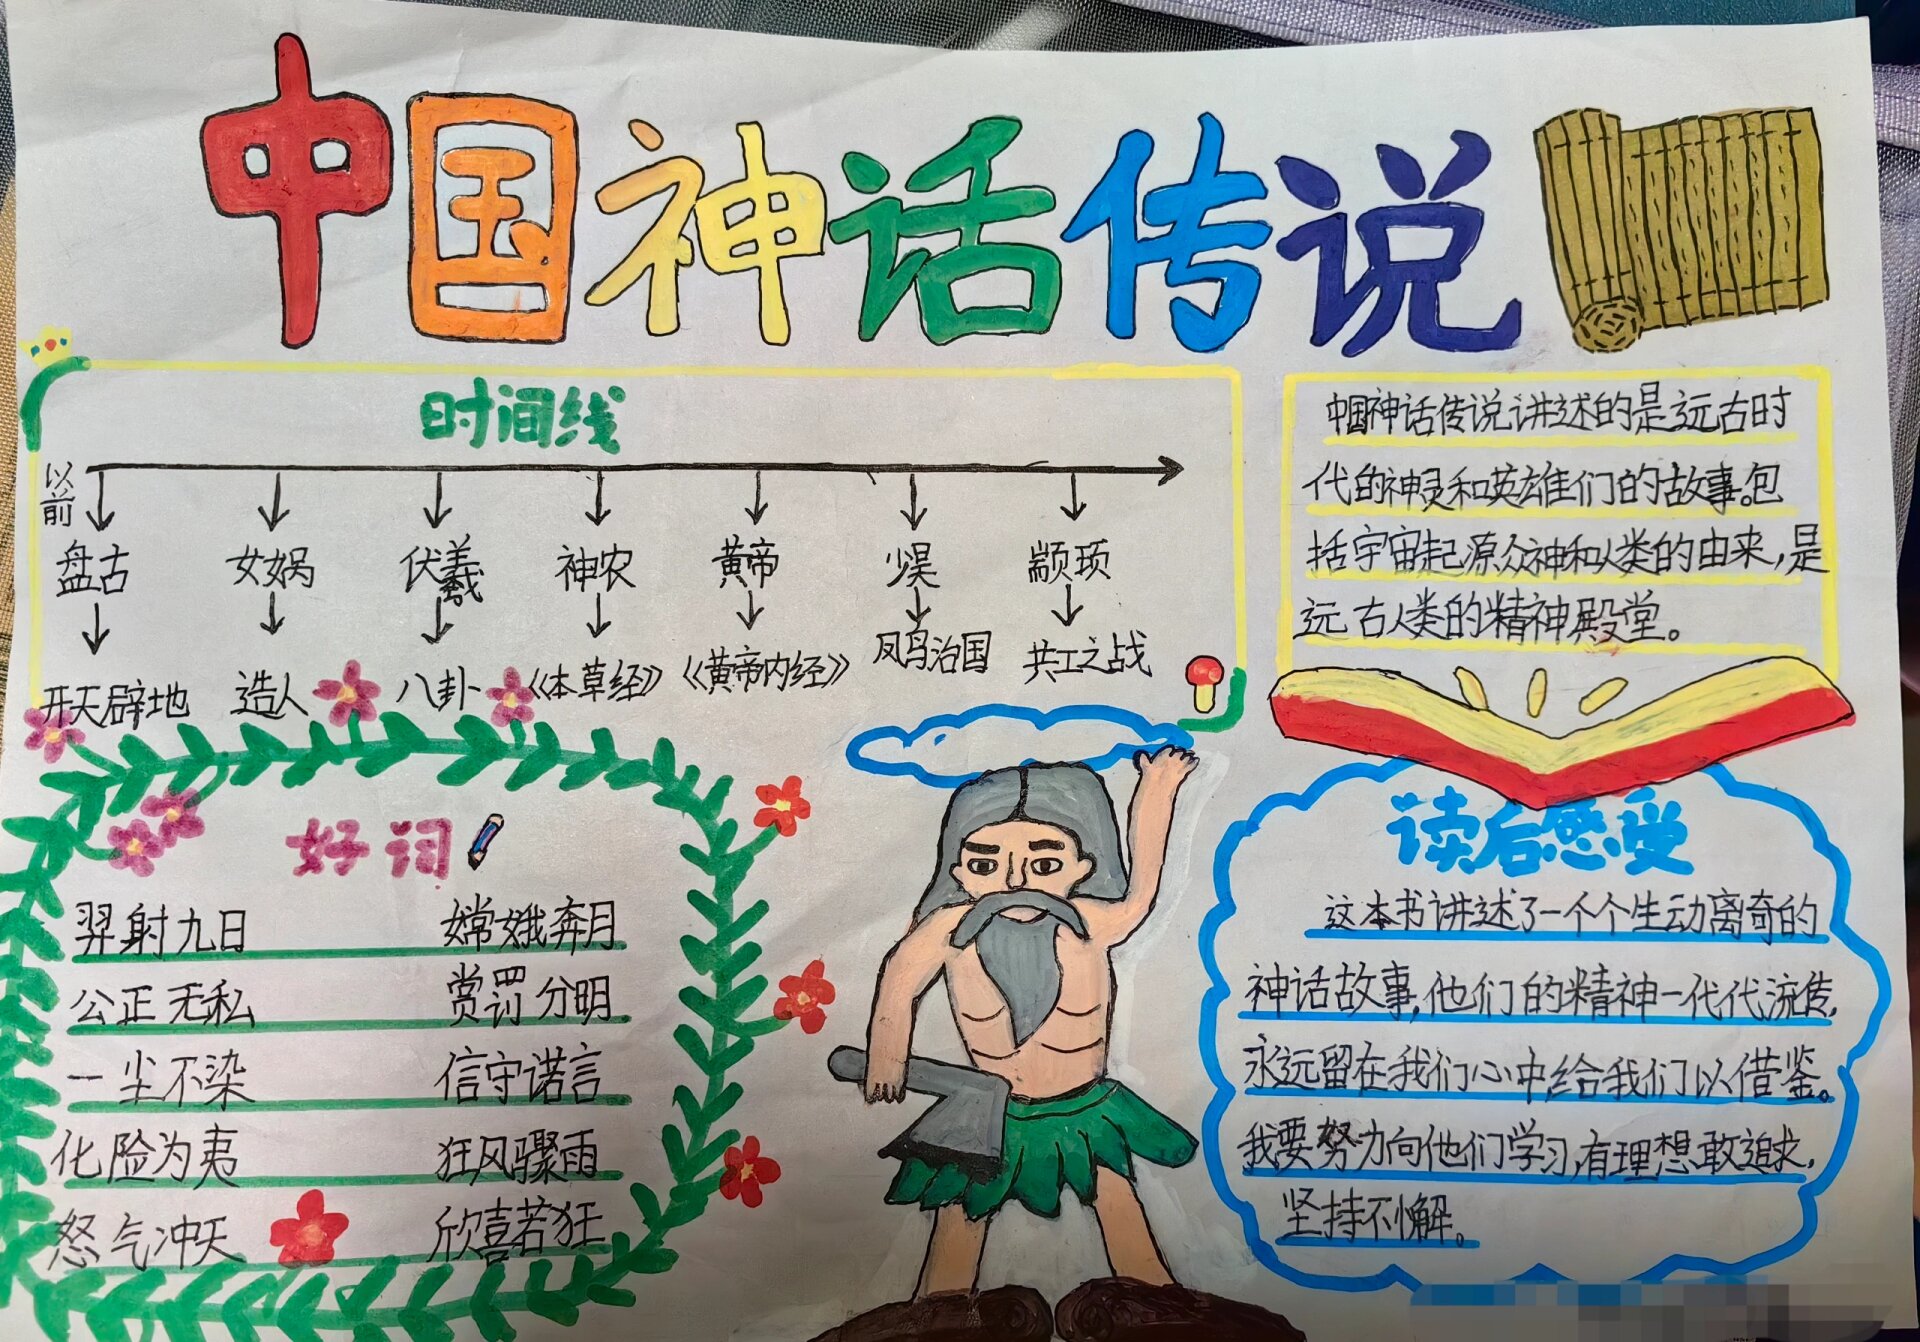 中国神话传说
时间线
以前
盘古 女娲 伏羲 神农 黄帝 少昊 颛顼
开天辟地 造人 八卦 《本草经》 《黄帝内经》 凤鸟治国 共工之战
中国神话传说讲述的是远古时
代的神灵和英雄们的故事。包
括宇宙起源众神和人类的由来,是
远古人类的精神殿堂。
好词
羿射九日 嫦娥奔月
公正无私 赏罚分明
一尘不染 信守诺言
化险为夷 狂风骤雨
怒气冲天 欣喜若狂
读后感受
这本书讲述了一个个生动离奇的
神话故事,他们的精神一代代流传,
永远留在我们心中给我们以借鉴。
我要努力向他们学习,有理想敢追求,
坚持不懈。